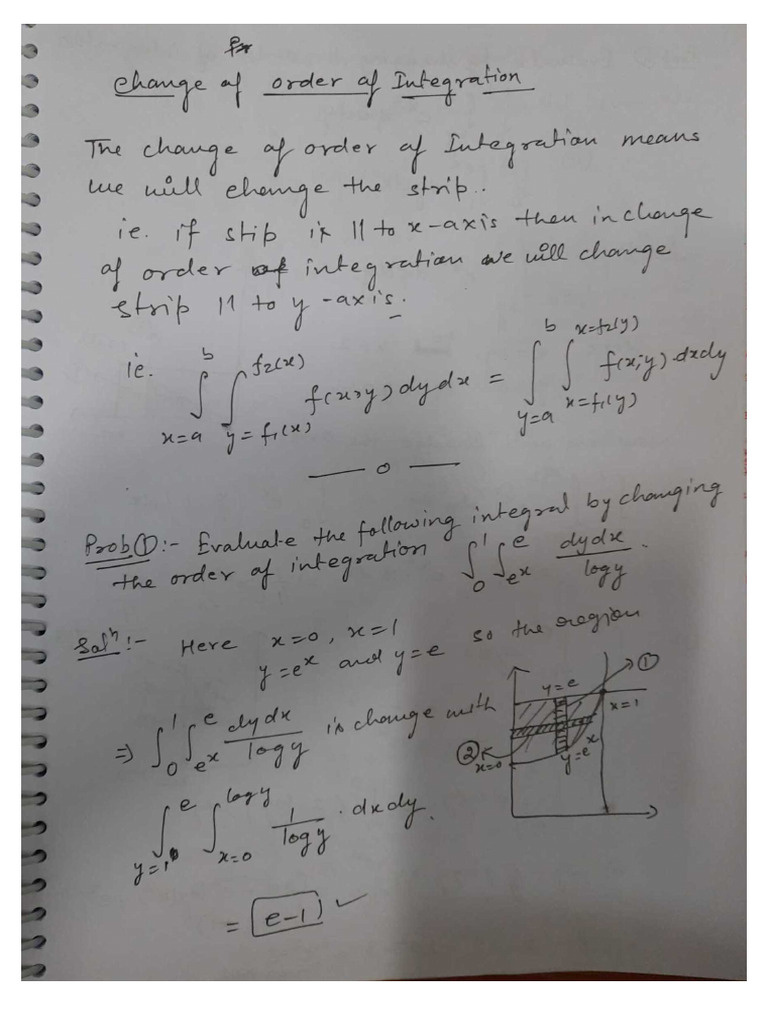 Change of order of Integration
The change of order of Integration means
we will change the strip..
ie. if stip is || to x-axis then in change
of order of integration we will change
strip || to y-axis.
ie. ∫_{x=a}^{b} ∫_{y=f₁(x)}^{f₂(x)} f(x,y) dy dx = ∫_{y=a}^{b} ∫_{x=f₁(y)}^{x=f₂(y)} f(x,y) dx dy
— o —
Prob①:- Evaluate the following integral by changing
the order of integration ∫_0^1 ∫_{e^x}^e dydx/logy.
Solⁿ:- Here x=0, x=1
y=e^x and y=e so the region
⇒ ∫_0^1 ∫_{e^x}^e dydx/logy is change with
∫_{y=1}^e ∫_{x=0}^{logy} 1/logy · dxdy.
= e-1 ✓
①
y=e
x=1
②
x=0
y=e^x